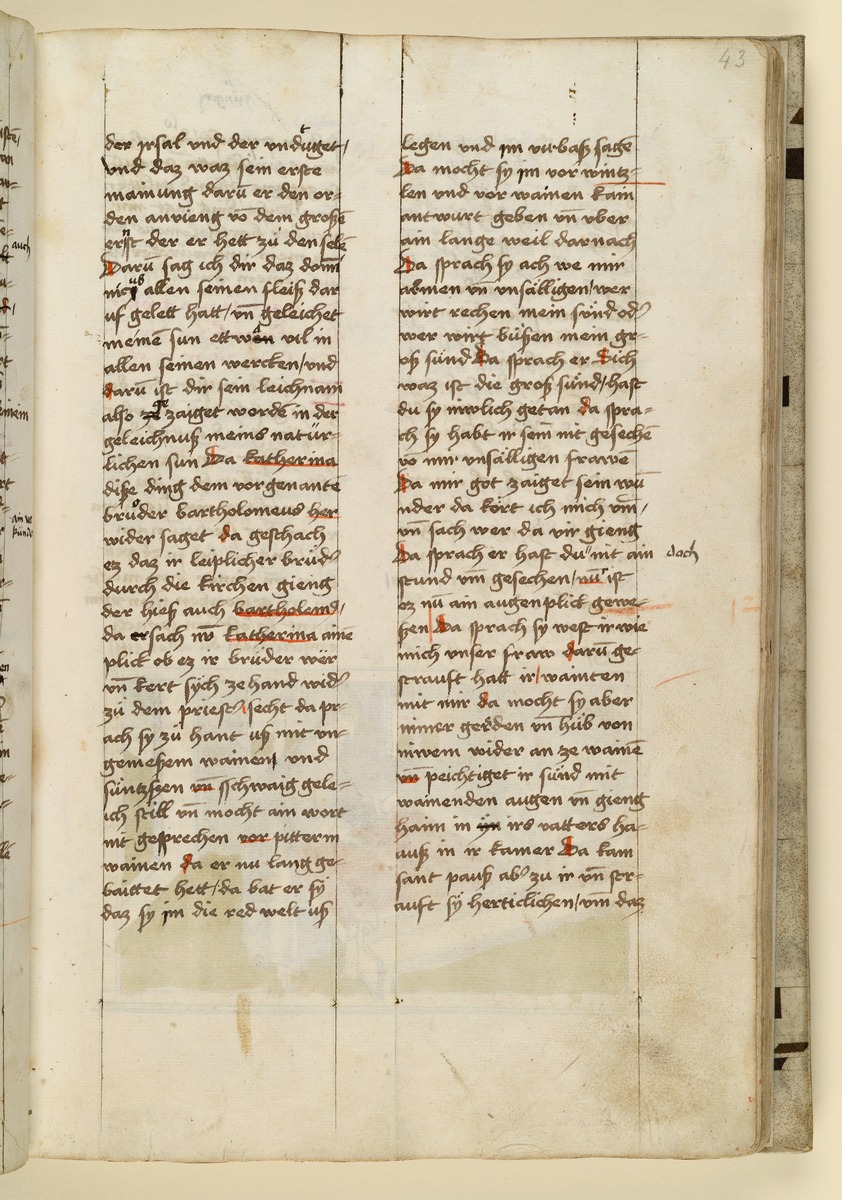 43
der irsal vnd der vndůget /
vnd daz waz sein erste
mainung darū er den or-
den anvieng vō dem großē
ernst der er hett zů den selē
Darū sag ich dir daz domī
nicus allen seinen fleiß dar
uf gelett hatt / vn̄ geleichet
meinē sun ettwen vil in
allen seinen wercken / vnd
darū ist dir sein leichnam
also ze zaiget worden in der
geleichnuß meins natür-
lichen sun Da katherina
diße ding dem vorgenantē
brůder bartholomeus her
wider saget da geschach
ez daz ir leiplicher brůd'
durch die kirchen gieng
der hieß auch bartholome9 /
da ersach katherina ainē
plick ob ez ir brůder wër
vn̄ kert sÿch zehand wid'
zů dem priest' / secht da pr-
ach sy zů hant uß mit vn-
gemeßem wainen / vnd
süntzßen vn̄ sschwaig gele-
ich still vn̄ mocht ain wort
nit gesprechen vor pitterm
wainen da er nu lang ge-
baittet hett / da bat er sÿ
daz sy im die red welt uß
legen vnd im vürbaß sagē
Da mocht sy im vor wintz-
len vnd vor wainen kain
antwurt geben vn̄ vber
ain lange weil darnach
Da sprach sy ach we mir
armen vn̄ vnsälligen / wer
wirt rechen mein sünd od'
wer wirt büßen mein gr-
oß sünd Da sprach er Sich
waz ist die groß sünd / hast
du sy irrlich getan da spra-
ch sy habt ir sein nit gesechē
vō mir vnsälligen frawē
Da mir got zaiget sein wū
nder da kört ich mich vm̄ /
vn̄ sach wer da vir gieng
Da sprach er hast du nit ain doch
stund vm̄ gesechen / nū ist
ez nū ain augenplick gewe-
ßen Da sprach sÿ west ir wie
mich vnser fraw darū ge-
strauft hatt ir / wainten
mit mir da mocht sy aber
nimer gerden vn̄ hůb von
niwem wider an ze wainē
vn̄ peichtiget ir sünd mit
wainenden augen vn̄ gieng
haim in irs vatters ha-
uß in ir kamer Da kam
sant pauß ab' zu ir vn̄ str-
auft sÿ herticlichen / vm̄ daz